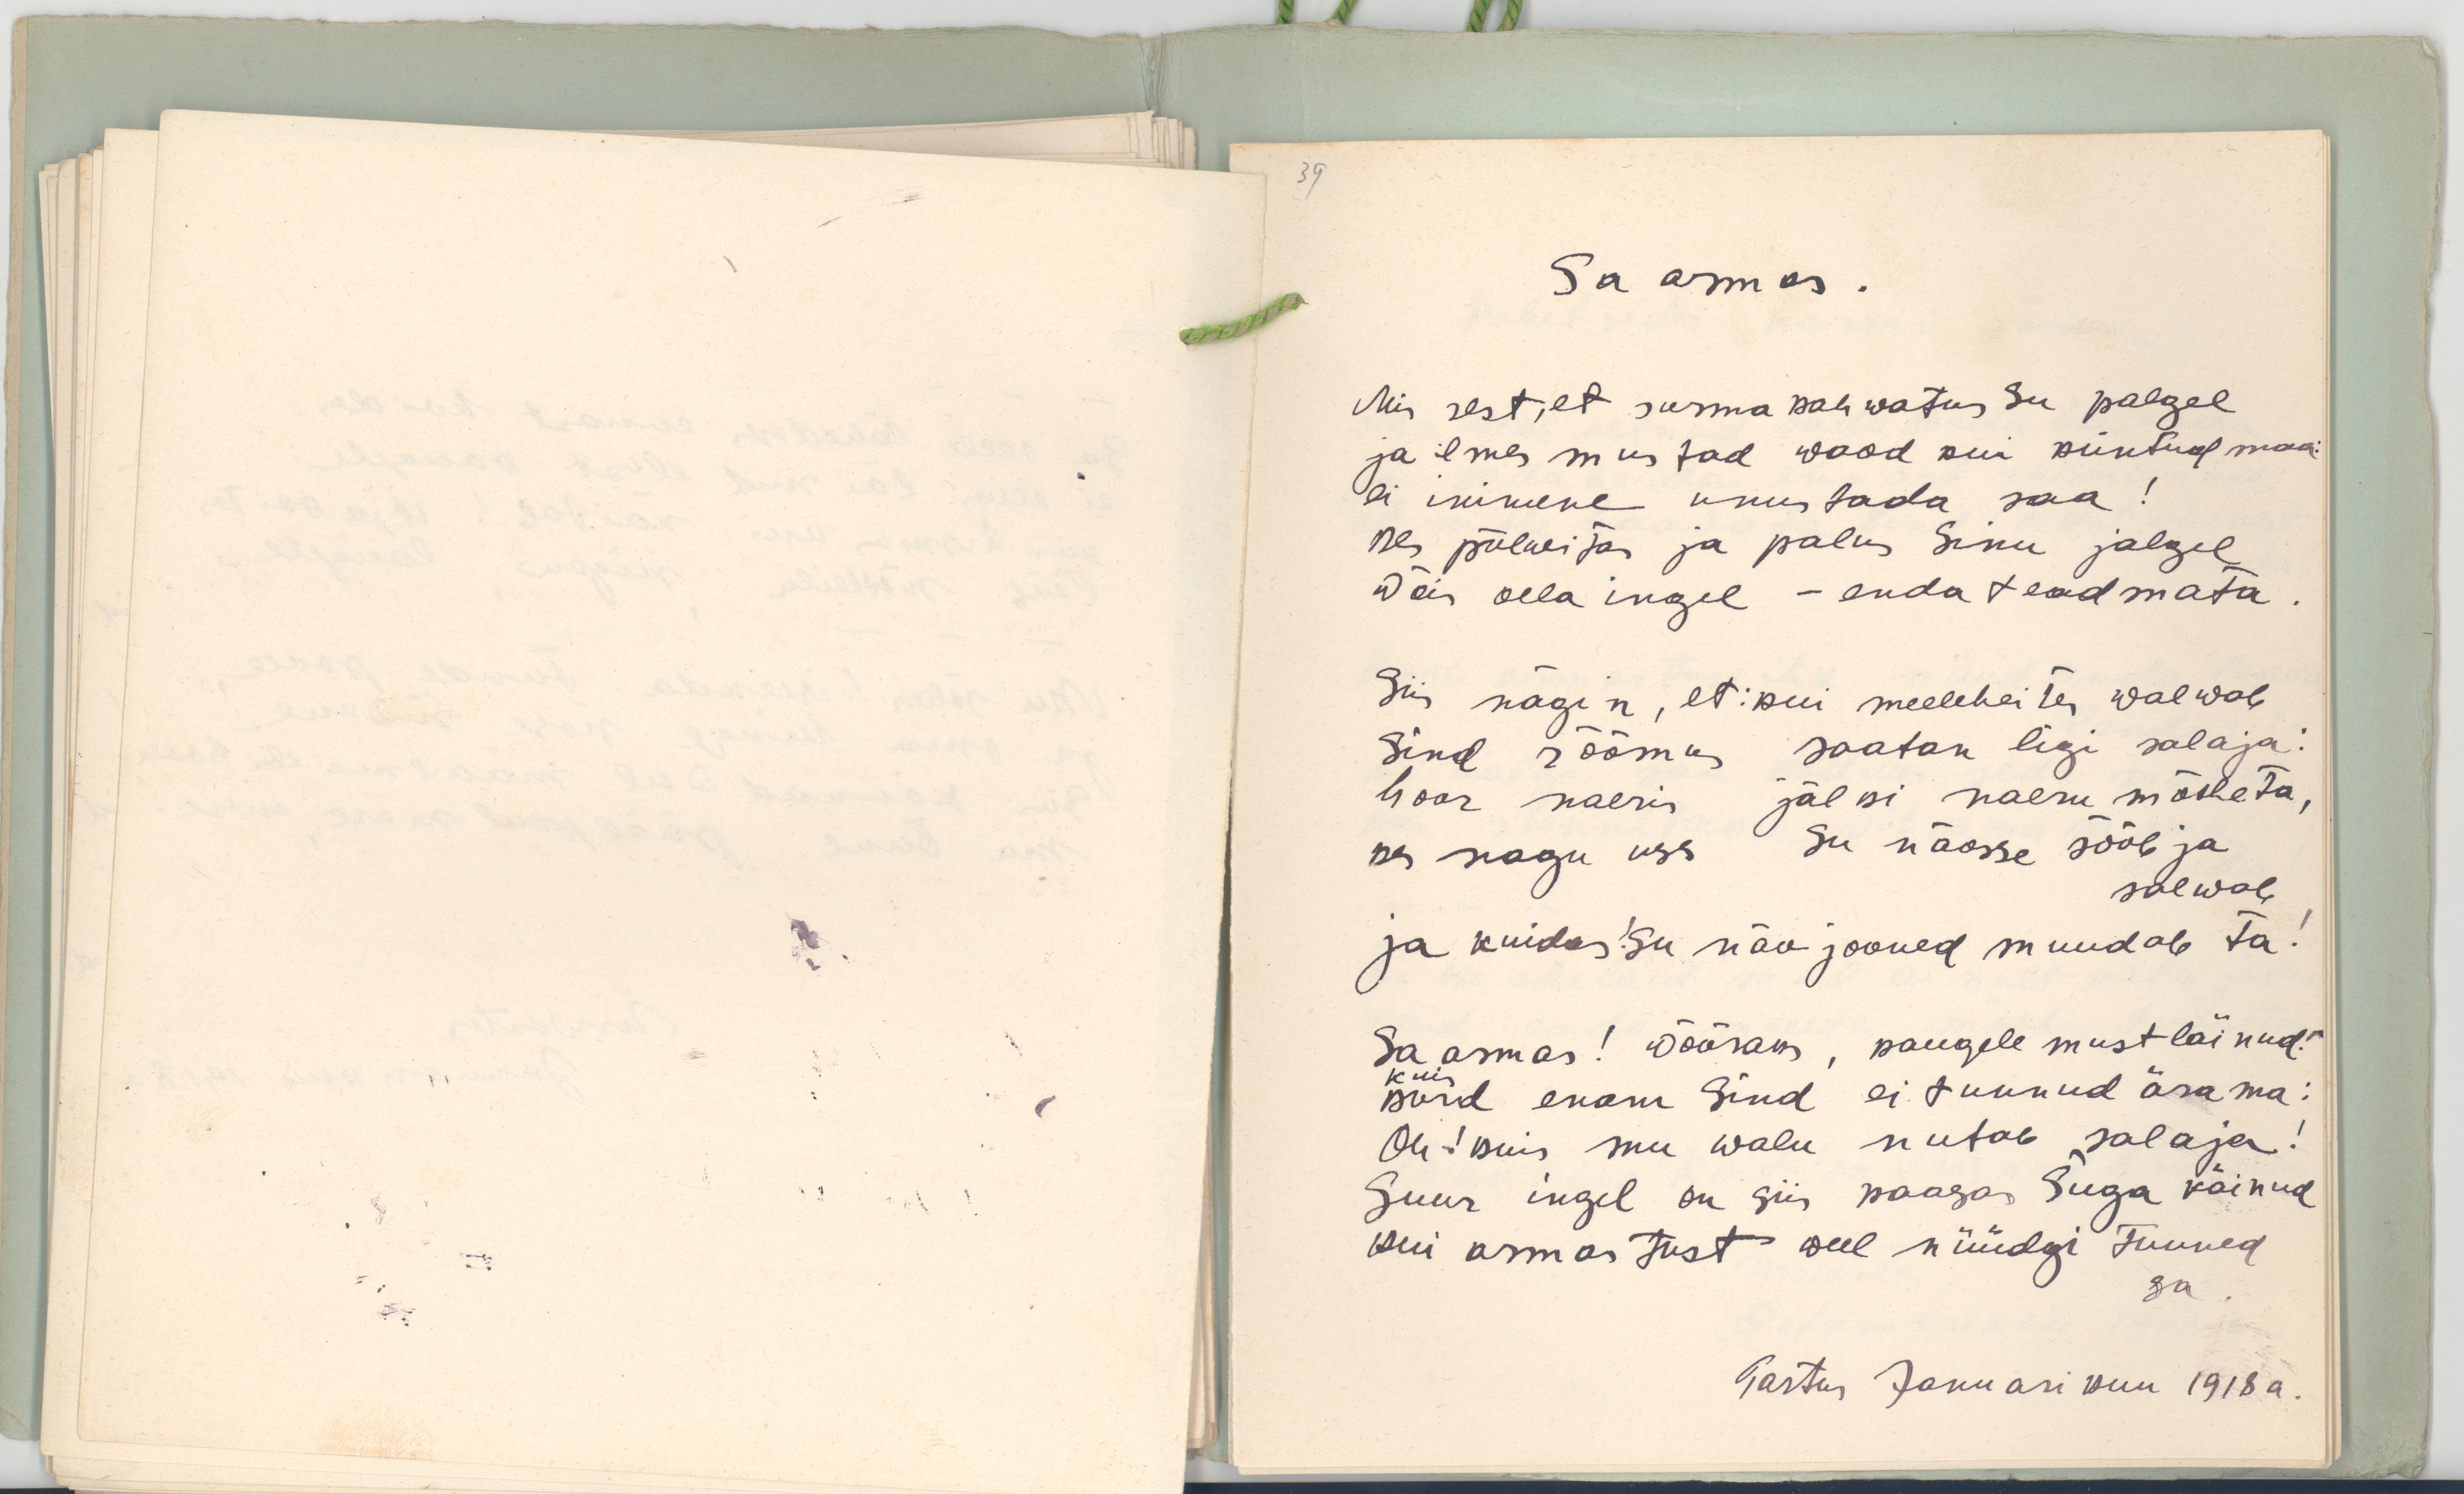 39
Sa armas.
Mis sest, et surma kahwatus Su palgel
ja ilmes mustad waod kui küntud maa:
ei inimene unustada saa!
kes põlwitas ja palus Sinu jalgel
Wõis olla ingel – enda teadmata.
Siis nägin, et: kui meeleheites walwab
Sind rõõmus saatan ligi salaja:
hoor naeris jälki naeru mõtteta,
kes nagu uss Su näosse sööb ja
salwab
ja kuidas! Su näo jooned muudab ta!
Sa armas! Wõõraks, kaugele must läinud!
kuis
kord enam Sind ei tunnud ära ma:
Oh! kuis mu walu nutab salaja!
Suur ingel on siis kaasas Suga käinud
kui armastust weel nüüdgi tunned
sa.
Tartus Januari kuu 1918 a.